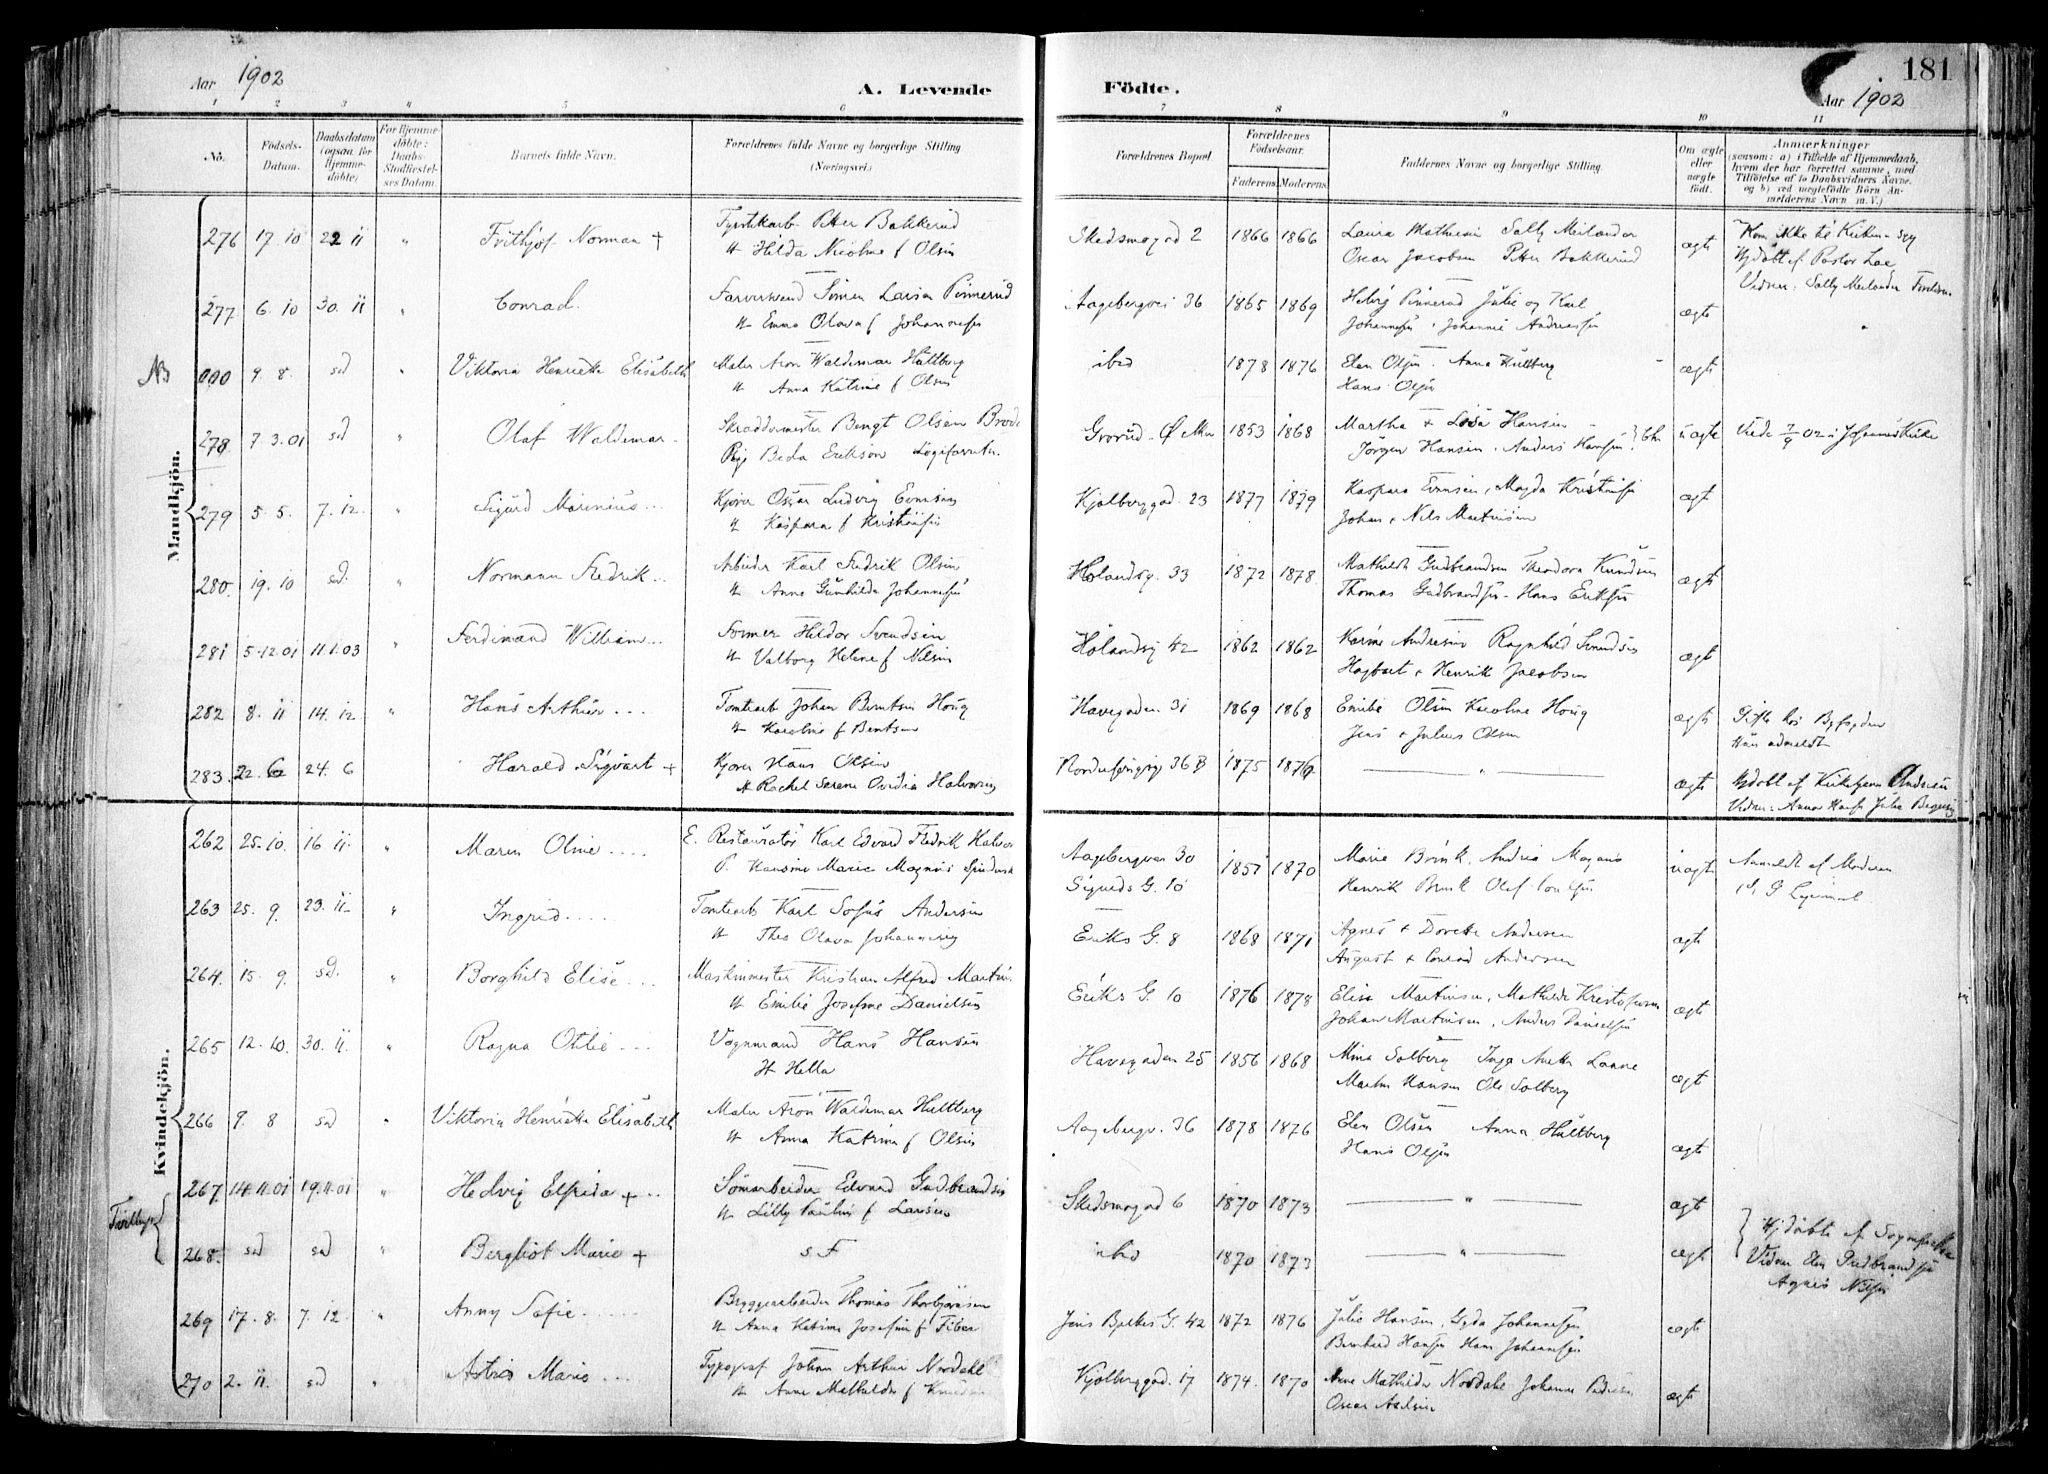 Aar 1902
A. Levende
Födte.
181
Aar 1902
1 2 3 4 5 6 7 8 9 10 11
No.
Födsels-
Datum.
Daabsdatum
(ogsaa for
Hjemme-
döbte)
For Hjemme-
döbte:
Daabs-
Stadfæstel-
ses Datum
Barnets fulde Navn.
Forældrenes fulde Navne og borgerlige Stilling
(Næringsvei.)
Forældrenes Bopæl
Forældrenes
Födselsaar.
Faderens Moderens
Faddernes Navne og borgerlige Stilling.
Om ægte
eller
uægte
födt.
Anmærkninger
(saasom: a) i Tilfælde af Hjemmedaab,
hvem der har forrettet samme, med
Tilföielse af to Daabsvidners Navne,
og b) ved uægtefödte Börn An-
melderens Navn m. V.)
Mandkjön.
276 17.10 22 11 " Frithjof Norman + Petter Bakkerud
Hilda Nicoline f Olsen
Skedsmogad 2 1866 1866 Laura Mathisen Sally Meilander
Oscar Jacobsen Petter Bakkerud
ægte
Kom ikke til Kirken - syg
Hjdöbt af Pastor
Vidner: Sally Meilander
277 6.10 30.11 " Conrad. Farversvend Simen Larsen Pinnerud
H Emma Olava f Johannesen
Aagebergvei 36 1865 1869 Pinnerud Julie og Karl
Johannesen. Johannes Andreassen
ægte
NB 000 9.8. sd " Viktoria Henriette Elisabeth Maler Aron Waldemar Hultberg
H Anna Katrine f Olsen
ibid 1878 1876 Elen Olsen. Anna Hultberg
Hans Olsen
ægte
278 7.3.01 sd " Olaf Waldemar Skræddermester Bengt Olsen
Pige Beda Erikson
Grorud - Ø Aker 1853 1868 Martha + Lovisa Hansen
Jörgen Hansen. Anders Hansen
uægte
Viede 7/9 02 i Johannes Kirke
279 5.5. 7.12. " Sigurd Marinius Kjører Oscar Ludvig Evensen
H Kaspara f Kristiansen
Kjölberggad. 23 1877 1879 Kaspara Evensen, Magda Kristiansen
Johan + Nils Martinsen
ægte
280. 19.10 sd. " Normann Fredrik Arbeider Karl Fredrik Olsen
H Anne Gunhilda Johannesen
Hölandsg. 33 1872 1878 Mathilde Gudbrandsen Theodora Knudsen
Thomas Gudbrandsen - Hans Eriksen
ægte
281 5.12.01 11.1.03 " Ferdinand William Former Hildor Svendsen
H Valborg Helene f Nilsen
Hölandsg 42 1862 1862 Karine Andresen Ragnhild Svendsen
Hagbart + Henrik Jacobsen
ægte
282 8.11 14.12 " Hans Arthur Tomtearb Johan Berntsen Houg
H Karoline f Berntsen
Havegaden 31 1869 1868 Emilie Olsen Karoline Houg
Jens + Julius Olsen
ægte
283. 22.6 24.6 Harald Sigvart + Kjører Hans Olsen
H Rachel Serene Ovidia Halvorsen
36 B 1875 1876 "
ægte
Hjdöbt af Andresen
Vidner: Anna Hansen Julie
Kvindekjön.
262 25.10. 16 11. " Maren Oline E. Restauratör Karl Edvard Fredrik
P. Hansine Marie Magnus
Aagebergveien 30
Sigurds G. 10
1857 1870 Marie Brink. Andrea
Henrik Brink Olaf
uægte
Anmeldt af Moderen
263 25.9. 23.11. " Ingrid Tomtearb Karl Sofus Andersen
H Thea Olava Johannesen
Eriks G. 8 1868 1871 Agnes + Dorthe Andersen
August + Conrad Andersen
ægte
264. 15.9. sd. " Borghild Elise Maskinmester Kristian Alfred Martins.
H Emilie Josefine Danielsen
Eriks G. 10 1876 1878 Elisa Martinsen, Mathilde Kristofersen
Johan Martinsen. Anders Danielsen
ægte
265 12.10. 30.11. " Ragna Othlie Vognmand Hans Hansen
H Hella
Havegaden 25 1856 1868 Mina Solberg Inga Laane
Martin Hansen Ole Solberg
ægte
266 9.8 sd " Viktoria Henriette Elisabeth Maler Aron Waldemar Hultberg
H Anna Katrine f Olsen
Aagebergv. 36 1878 1876 Elen Olsen Anna Hultberg
Hans Olsen
ægte
Tvillinger
267 14.11.01 19.11.01 " Hedvig Elfrida + Sömarbeider Edvard Gudbrandsen
H Lilly Pauline f Larsen
Skedsmogad 6 1870 1873 "
ægte
268. sd sd " Bergliot Marie + s F
ibid 1870 1873 "
ægte
Hjdöbte af
Vidner Elen Gudbrandsen
Agnes Nilsen
269 17.8. 7.12 " Anny Sofie Bryggearbeider Thomas Thorbjørnsen
H Anna Katrine Josefine f Fiber
Jens Bjelkes G. 42 1872 1876 Julie Hansen, Gyda Johannesen
Bernhard Hansen Hans Johannesen
ægte
270 2.11. sd " Astrid Marie Typograf Johan Arthur Nordahl
H Anne Mathilde f Knudsen
Kjölberggad. 17 1874. 1870 Anne Mathilde Nordahl Johanne Pedersen
Oscar Axelsen
ægte